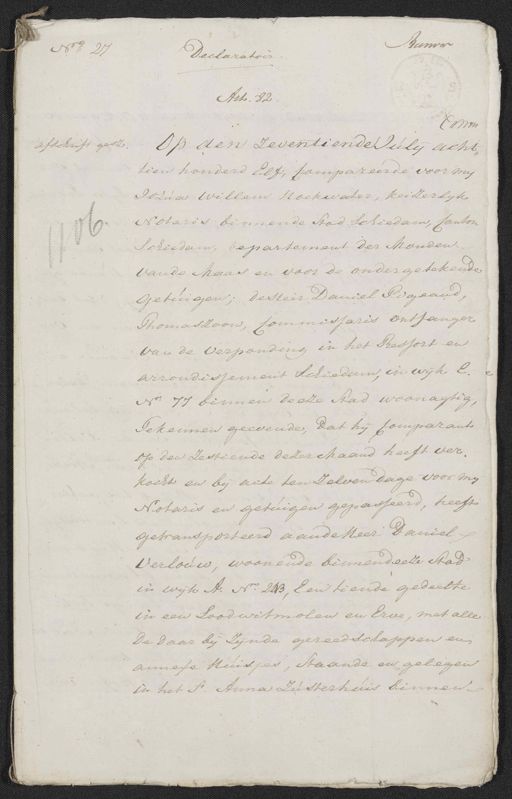 No. 27
Declaratoir
Art. 32.
Op den Zeventiende Julij acht
tien honderd Elf, Compareerde voor my
Willem Hoekwater, Keizerlyk
Notaris binnende Stad Schiedam, Canton
Schiedam, Departement der Monden
van de Maas en voor de ondergetekende
getuigen, de Heir Daniel Pigeaud,
Thomaszoon, Commissaris ontfanger
van de verponding in het Ressort en
arrondissement Schiedam, in wyk C.
No. 77 binnen deeze Stad woonagtig,
Te kennen geevende, Dat hy Comparant
op den Zestiende dezer Maand heeft ver,
kocht en bij acte ten Zelven dage voor my
Notaris en getuigen gepasseerd, heeft
getransporteerd aan de Heer Daniel
Verlouw, woonende binnen deeze Stad
in wyk A. No. 243, Een tiende gedeelte
in een Loodwitmolen en Erve, met alle
De daar bij Zynde gereedschappen en
annexe Huisjes, Staande en gelegen
in het St. Anna Zusterhuis binnen
1106.